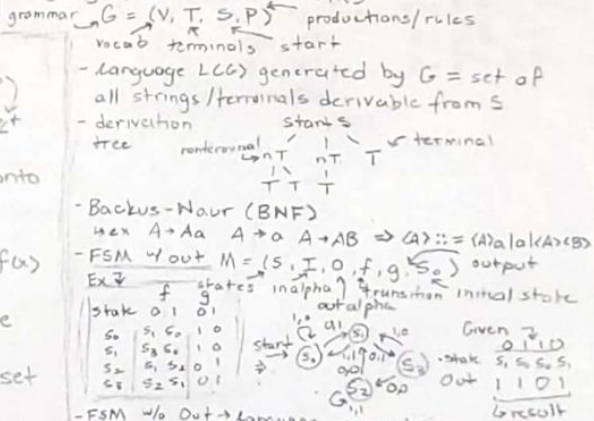 grammar G = (V, T, S, P) productions/rules
vocab terminals start
- Language L(G) generated by G = set of
all strings/terminals derivable from S
- derivation start S
tree nonterminal nT nT T terminal
T T T
onto
- Backus-Naur (BNF)
ex A→Aa A→a A→AB ⇒ <A>::=<A>a|a|<A><B>
f(x)
- FSM w/out M = (S, I, O, f, g, S₀) output
Ex states inalpha transition initial state
outalpha
f g
state 0 1 0 1
S₀ S₁ S₀ 1 0
S₁ S₃ S₀ 1 0
S₂ S₁ S₂ 0 1
S₃ S₂ S₁ 0 1
start S₀ S₁ S₃ S₂
1,0 0,1 1,0 1,1 0,1 0,0 0,0 1,1
Given
0 1 1 0
state S₁ S₀ S₀ S₁
Out 1 1 0 1
result
set
- FSM w/o Out →